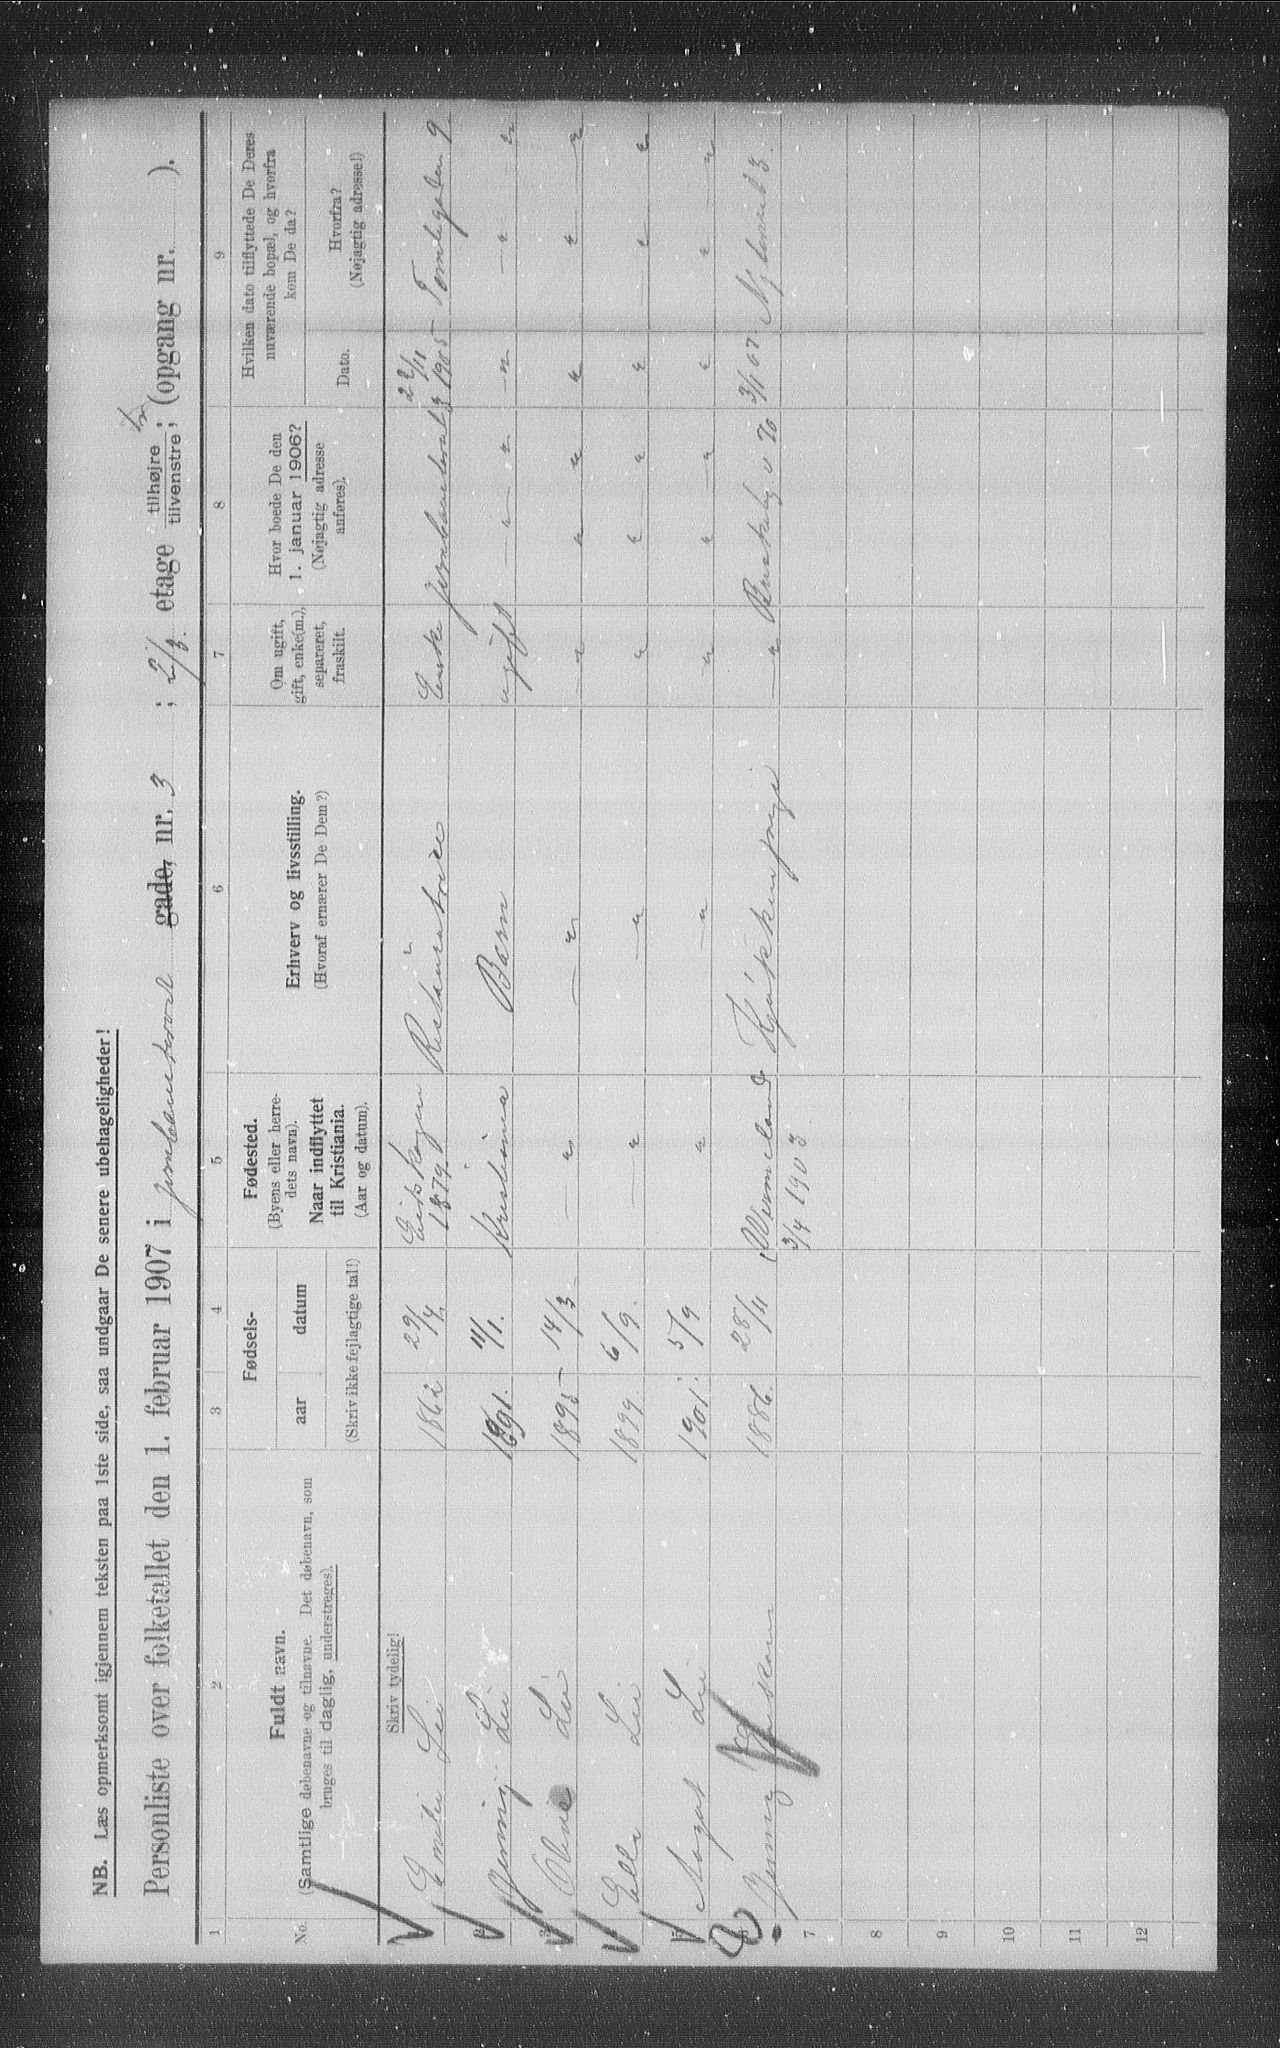 NB. Læs opmerksomt igjennem teksten paa 1ste side, saa undgaar De senere ubehageligheder!
Personliste over folketallet den 1. februar 1907 i Jernbanetorvet gade, nr. 3 ; 2/3. etage tilhøjre tilvenstre; (opgang nr. ).
1 2 3 4 5 6 7 8 9
No.
Fuldt navn.
(Samtlige døbenavne og tilnavne. Det døbenavn, som
bruges til daglig, understreges).
Skriv tydelig!
Fødsels-
aar datum
(Skriv ikke fejlagtige tal!)
Fødested.
(Byens eller herre-
dets navn).
Naar indflyttet
til Kristiania.
(Aar og datum).
Erhverv og livsstilling.
(Hvoraf ernærer De Dem?)
Om ugift,
gift, enke(m.),
separeret,
fraskilt.
Hvor boede De den
1. januar 1906?
(Nøjagtig adresse
anføres).
Hvilken dato tilflyttede De Deres
nuværende bopæl, og hvorfra
kom De da?
Dato.
Hvorfra?
(Nøjagtig adresse!)
Emilie Lie 1862 29/4. Eidskogen 1879 Enke Jernbanetorvet 3 1905 9
2 Jenny Lie 1891. 11/1. Kristiania Barn ugift " " " " "
3 Lie 1895 14/3 " " " " " " " "
Ella Lie 1899. 6/9. " " " " " " " "
5 Aagot Lie 1901. 5/9 " " " " " " " "
6 Jenny 1886. 28/11 Wermeland 3/4 1903 Kjøkkenpige " 3/1 07
7
8
9
10
11
12